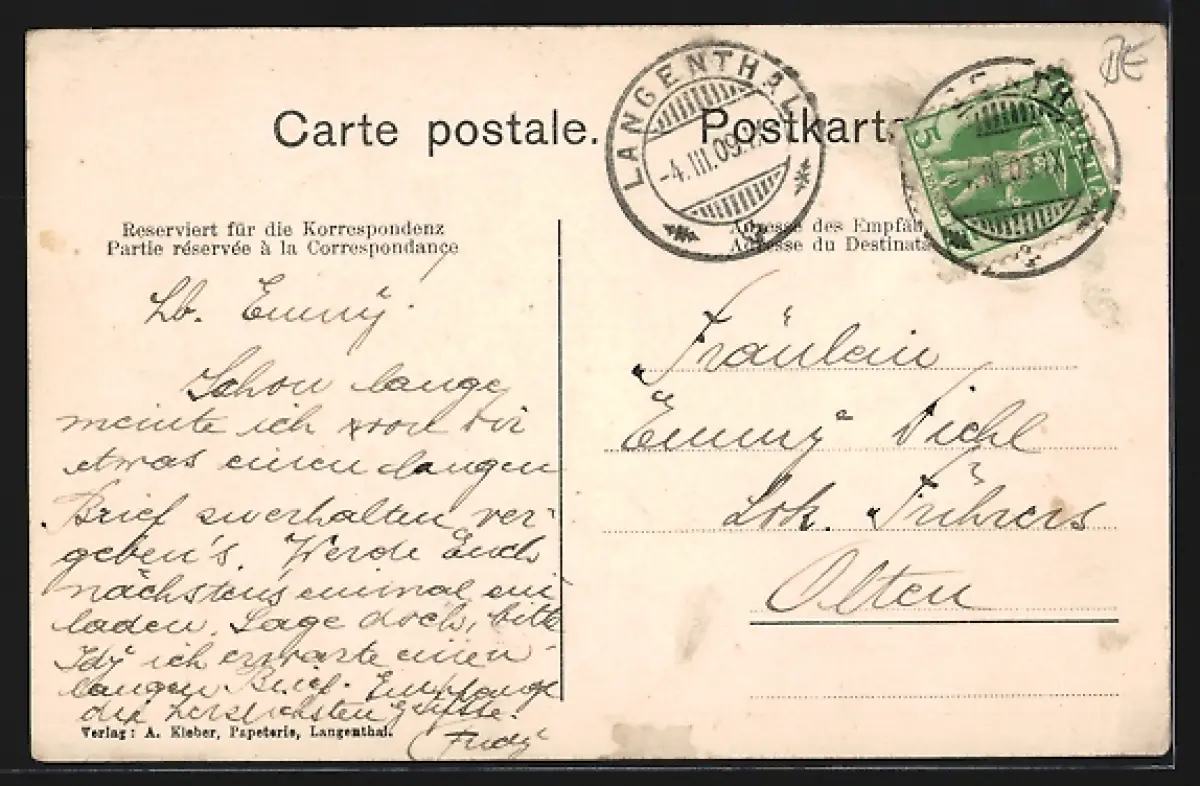 Carte postale. Postkarte
LANGENTHAL
-4.III.09.
5
BE
Reserviert für die Korrespondenz
Partie réservée à la Correspondance
Adresse des Empfän
Adresse du Destinata
Lb. Emmy!
Schon lange
meinte ich von dir
etwas einen langen
Brief zu erhalten, ver-
geben's. Werde Euch
nächstens einmal ein
laden. Sage doch, bitte
Idy ich erwarte einen
langen Brief. Empfange
die herzlichsten Grüsse.
Verlag: A. Kleber, Papeterie, Langenthal.
Fräulein
Emmy Diehl
Lok. Führers
Olten